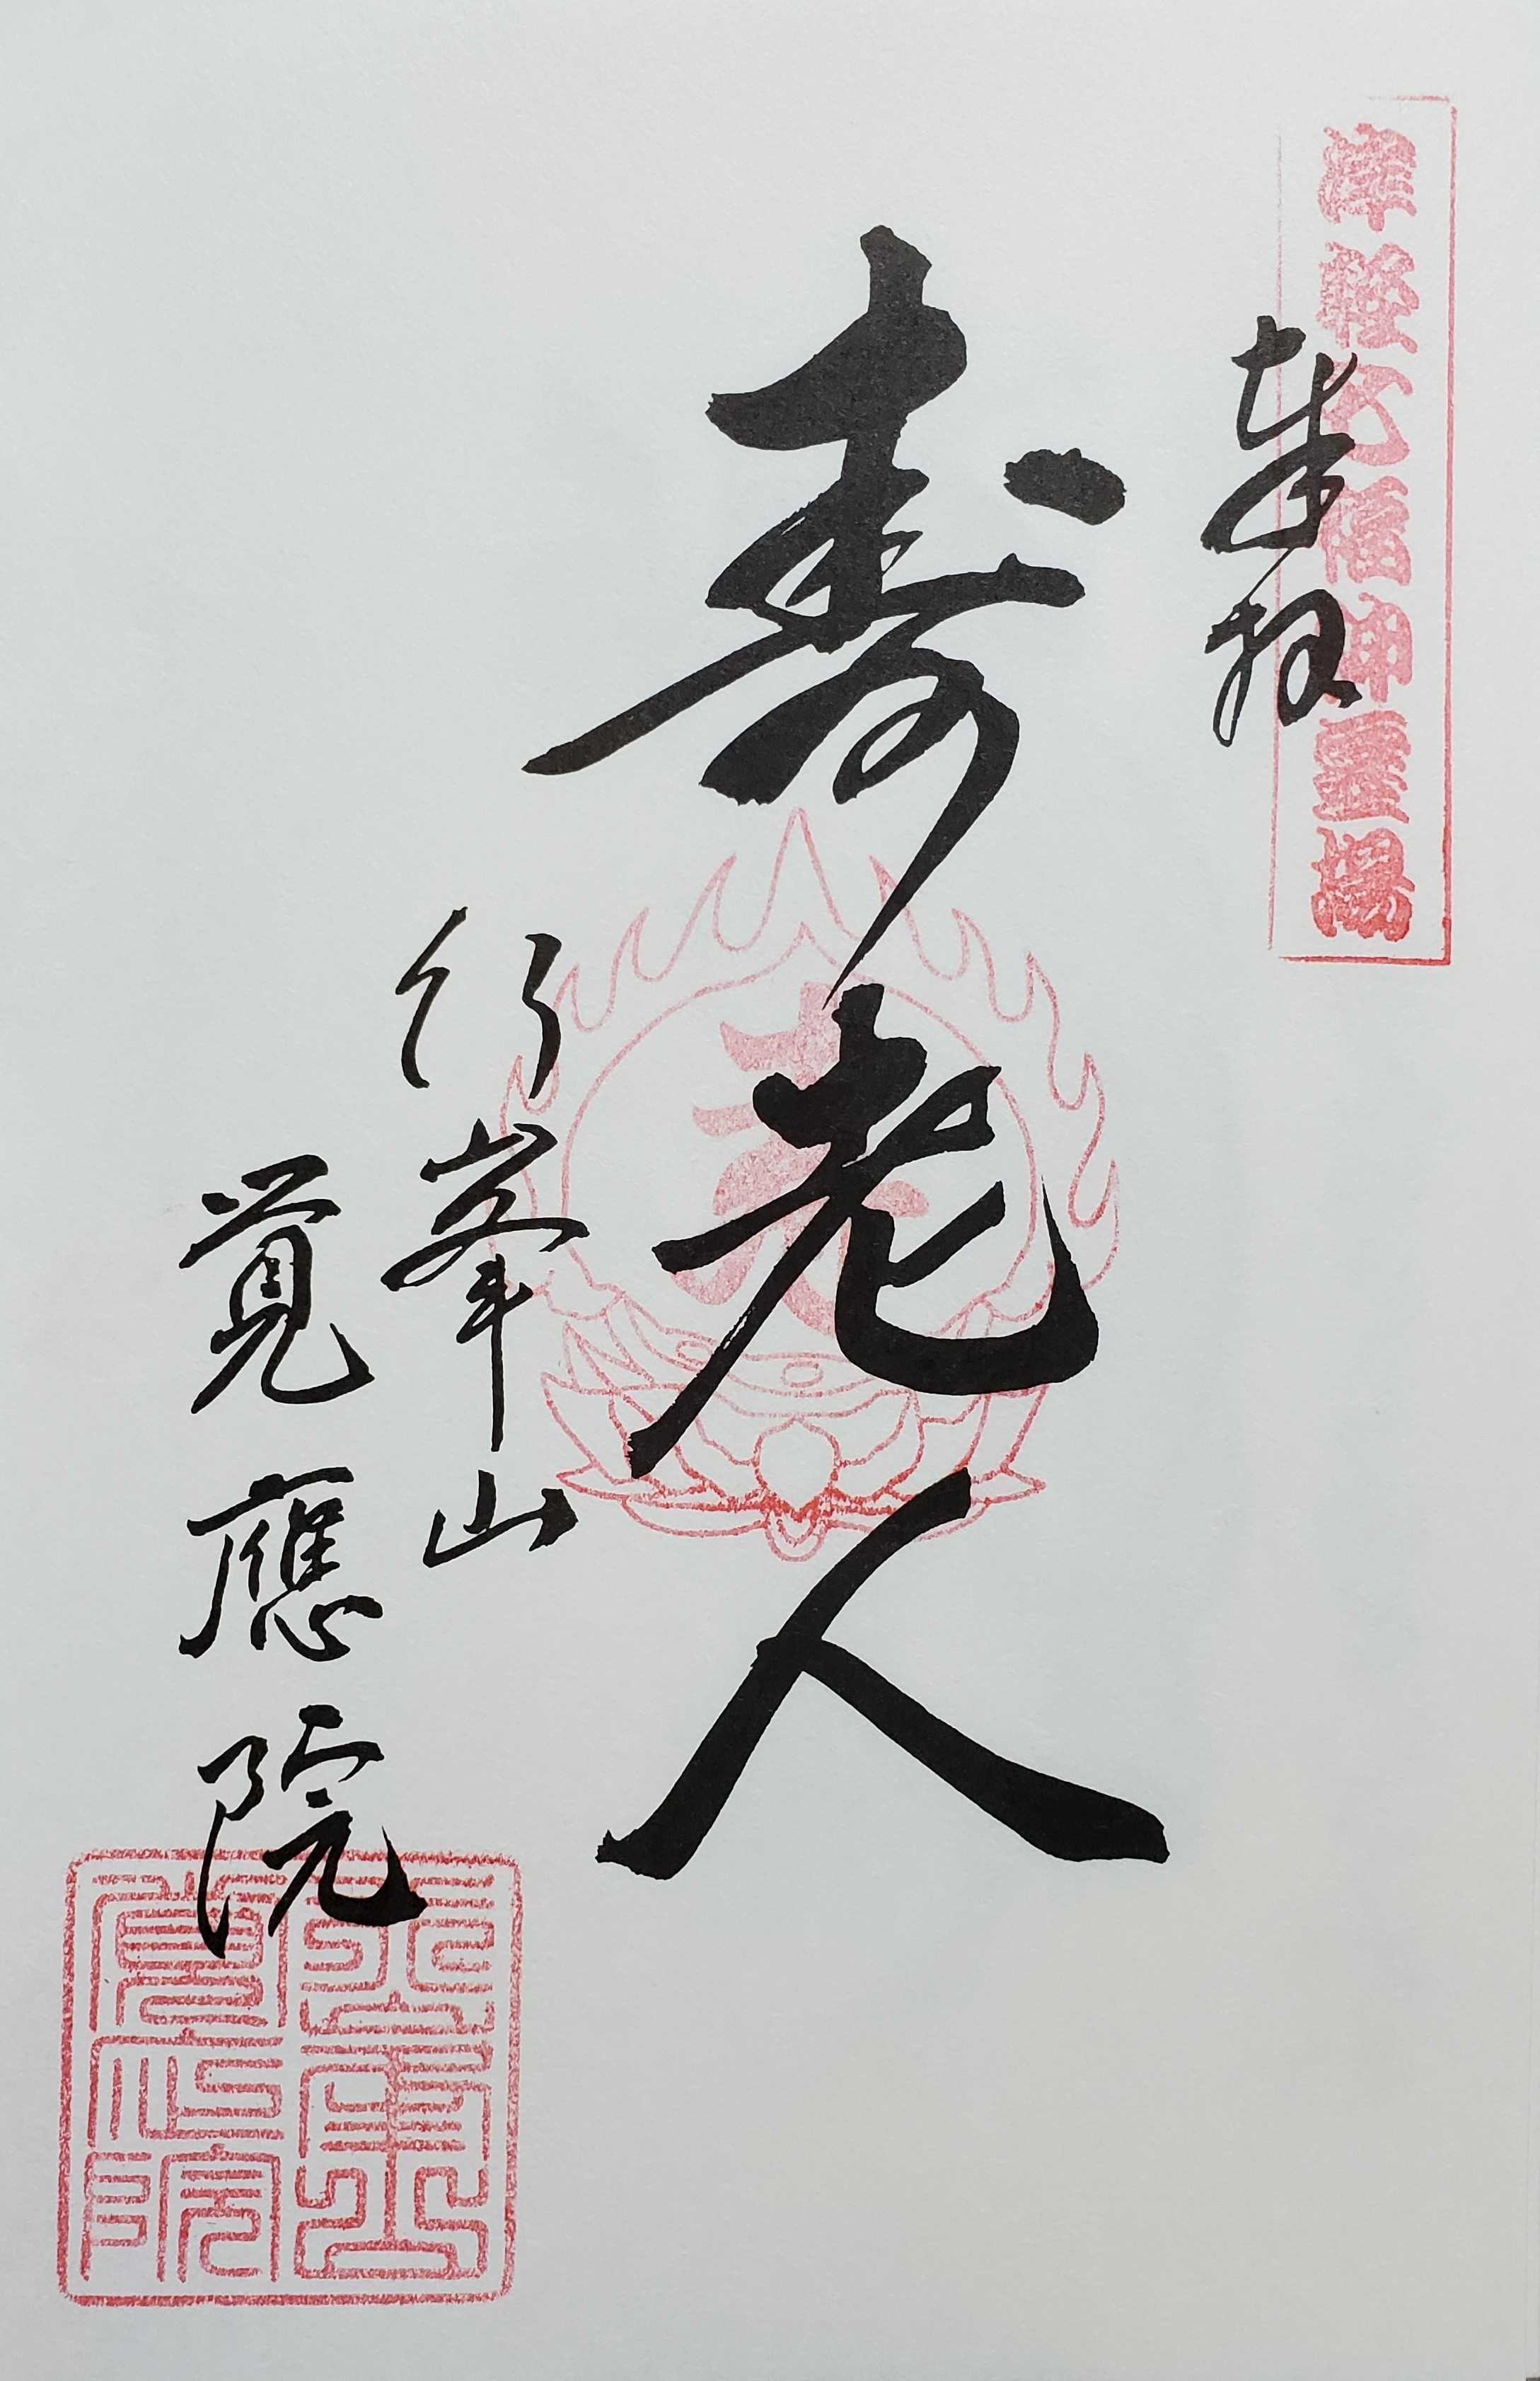 津軽七福神霊場
奉拝
寿老人
行峯山
覚應院